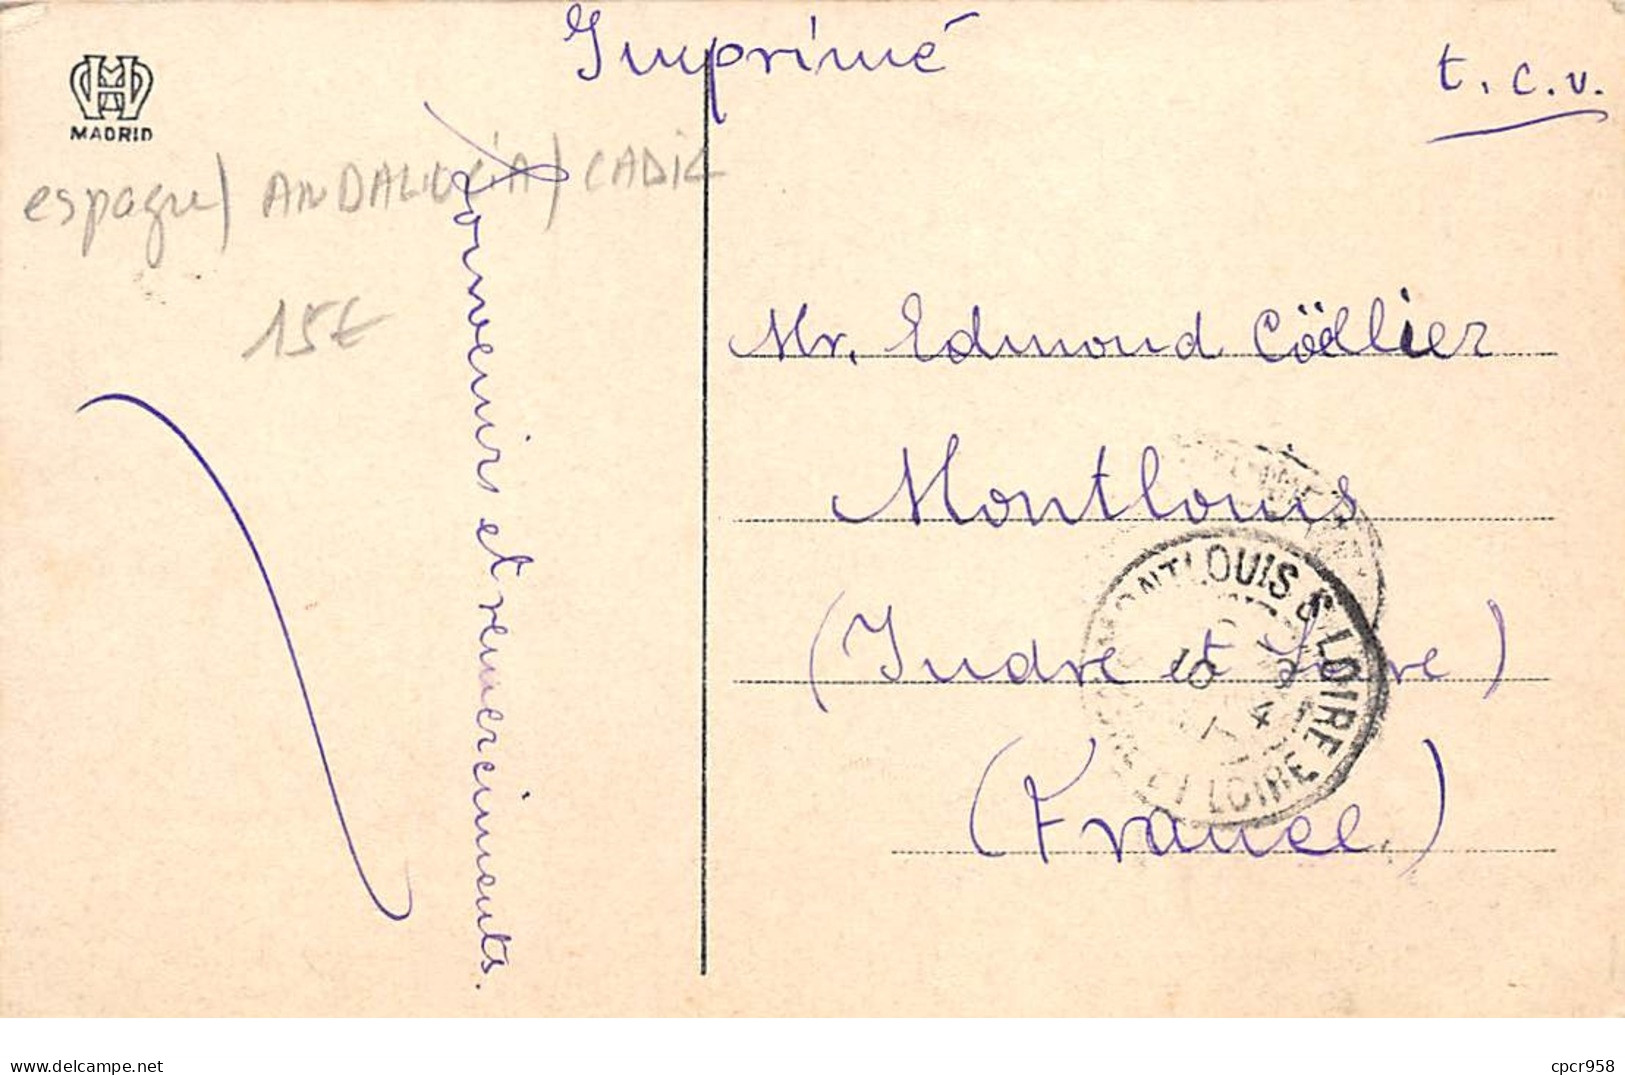 Imprimé
t.c.v.
MADRID
espagne) ANDALUCÍA) CADIZ
15€
Souvenirs et remerciments.
Mr. Edmond Cöëllier
Montlouis
(Indre et Loire)
(France)
MONTLOUIS S. LOIRE
INDRE ET LOIRE
10
4
www.delcampe.net
cpcr958